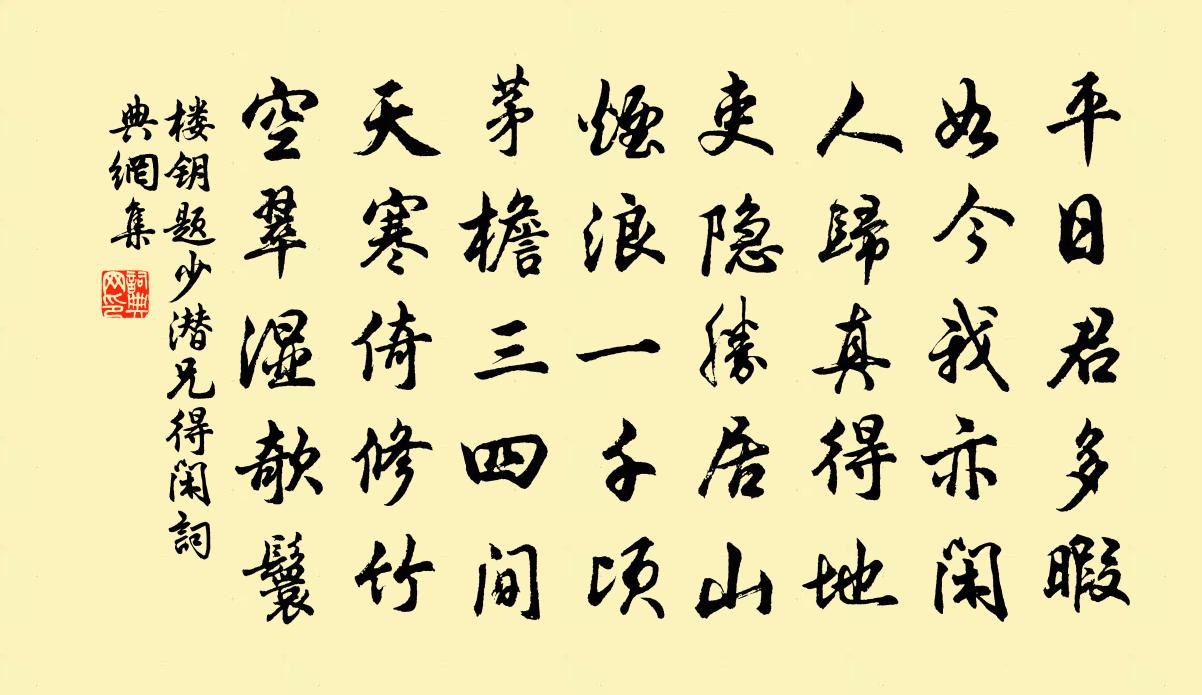 平日君多暇
如今我亦闲
人歸真得地
吏隐勝居山
煙浪一千顷
茅檐三四间
天寒倚修竹
空翠湿欹鬟
楼钥题少潜兄得闲詞
典網集
詞典
网印